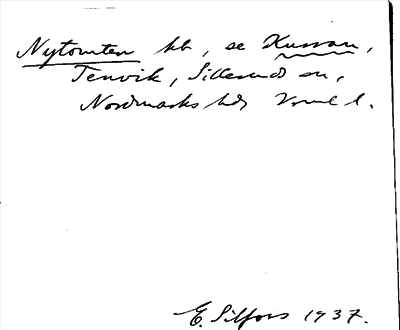 Nytomten hb, se Kussan,
Tenvik, Sillerud sn,
Nordmarks hd, Vrml l.
E. Silfors 1937.